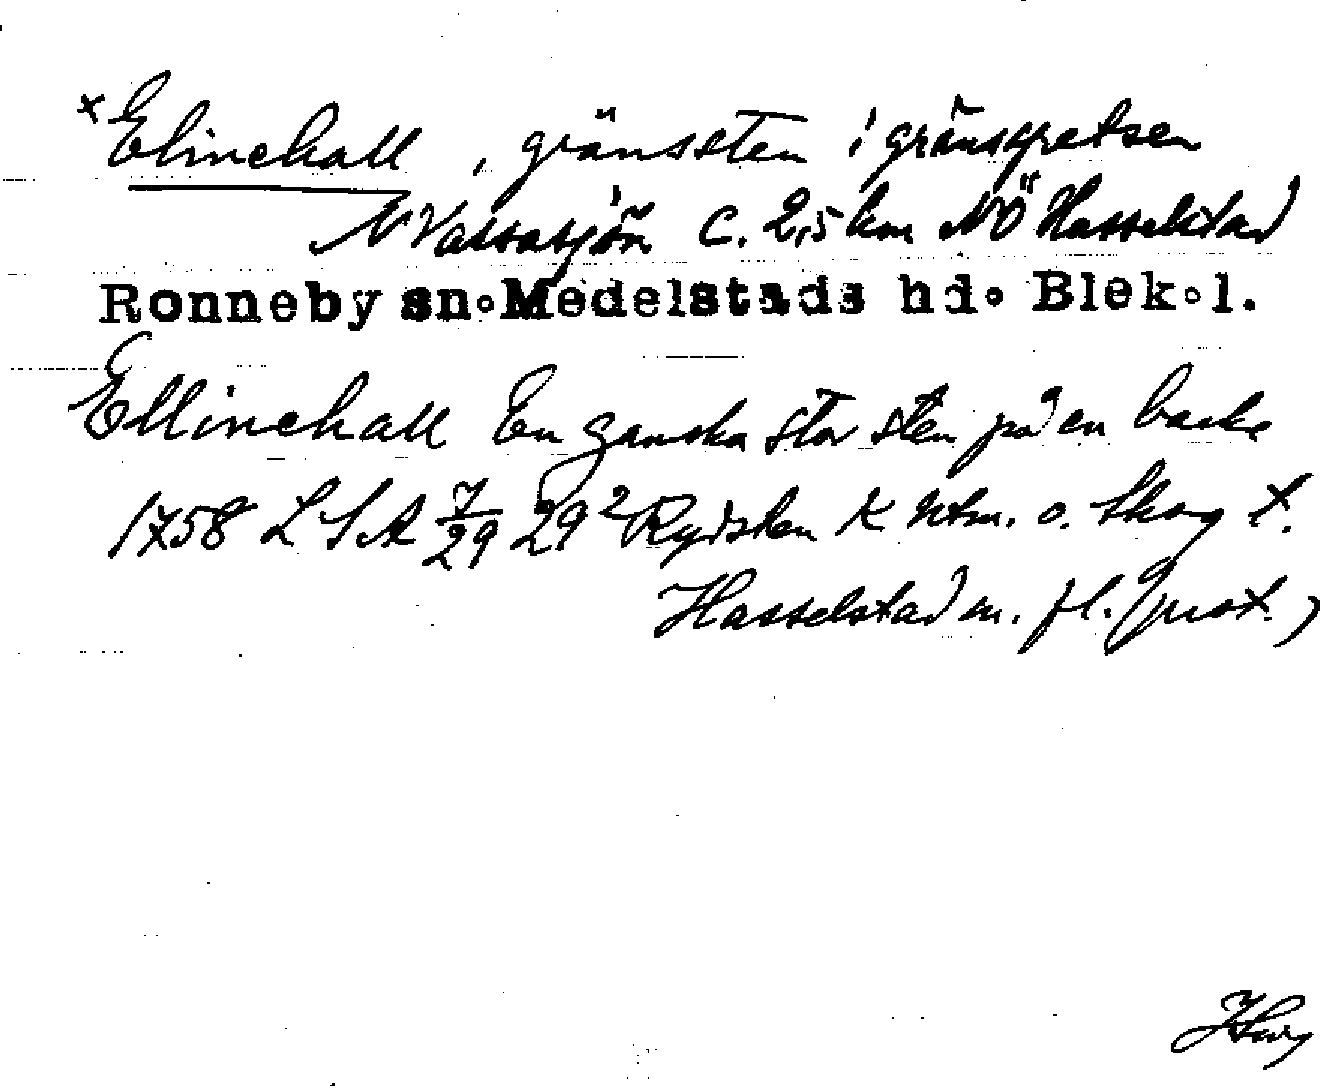 × Elinehall, gränssten i gränskretsen
N Vassasjön c. 2,5 km NÖ Hasselstad
Ronneby sn. Medelstads hd. Blek. l.
Ellinehall En ganska stor sten på en backe
1758 LSA 7/29 29² Rydsten K utm. o. Skog t.
Hasselstad m. fl. (prot.)